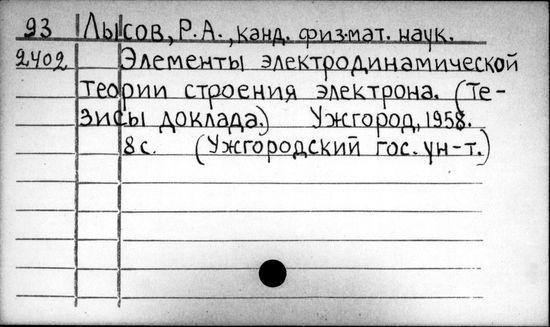 93 Лысов, Р.А., канд. физ-мат. наук.
2402 Элементы электродинамической
теории строения электрона. (Те-
зисы доклада.) Ужгород, 1958.
8 с. (Ужгородский гос. ун-т.)